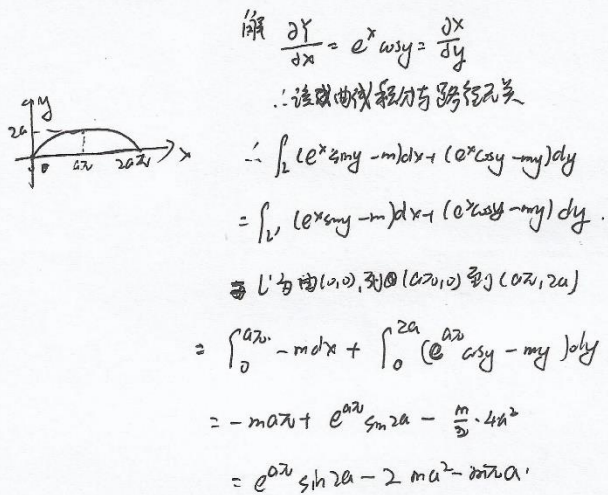 解 ∂Y/∂x = e^x cosy = ∂X/∂y
∴该曲线积分与路径无关
∴ ∫_L (e^x siny - m)dx + (e^x cosy - my)dy
= ∫_L' (e^x siny - m)dx + (e^x cosy - my)dy.
L'为由(0,0),到(aπ,0)到(aπ,2a)
= ∫_0^{aπ} -mdx + ∫_0^{2a} (e^{aπ} cosy - my)dy
= -maπ + e^{aπ} sin2a - m/2 · 4a²
= e^{aπ} sin2a - 2ma² - mπa.
y
2a
0 aπ 2aπ x